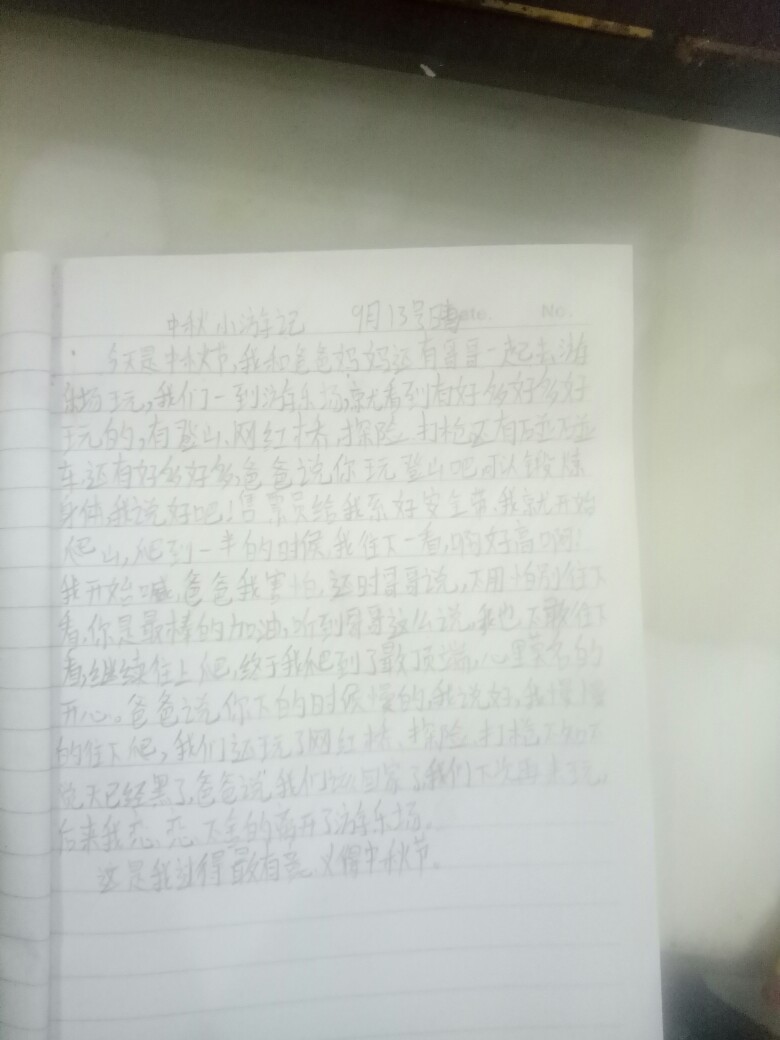 中秋小游记 9月13号 Date. No.
今天是中秋节,我和爸爸妈妈还有哥哥一起去游
乐场玩,我们一到游乐场,就看到有好多好多好
玩的,有登山、网红桥、探险、打枪还有碰碰
车还有好多好多,爸爸说你玩登山吧可以锻炼
身体,我说好吧!售票员给我系好安全带,我就开始
爬山,爬到一半的时候,我往下一看,啊好高啊!
我开始喊,爸爸我害怕,这时哥哥说,不用怕别往下
看,你是最棒的加油,听到哥哥这么说,我也不敢往下
看,继续往上爬,终于我爬到了最顶端,心里莫名的
开心。爸爸说你下的时候慢的,我说好,我慢慢
的往下爬,我们还玩了网红桥、探险、打枪不知不
觉天已经黑了,爸爸说我们回家了,我们下次再来玩,
后来我恋恋不舍的离开了游乐场。
这是我过得最有意义得中秋节。